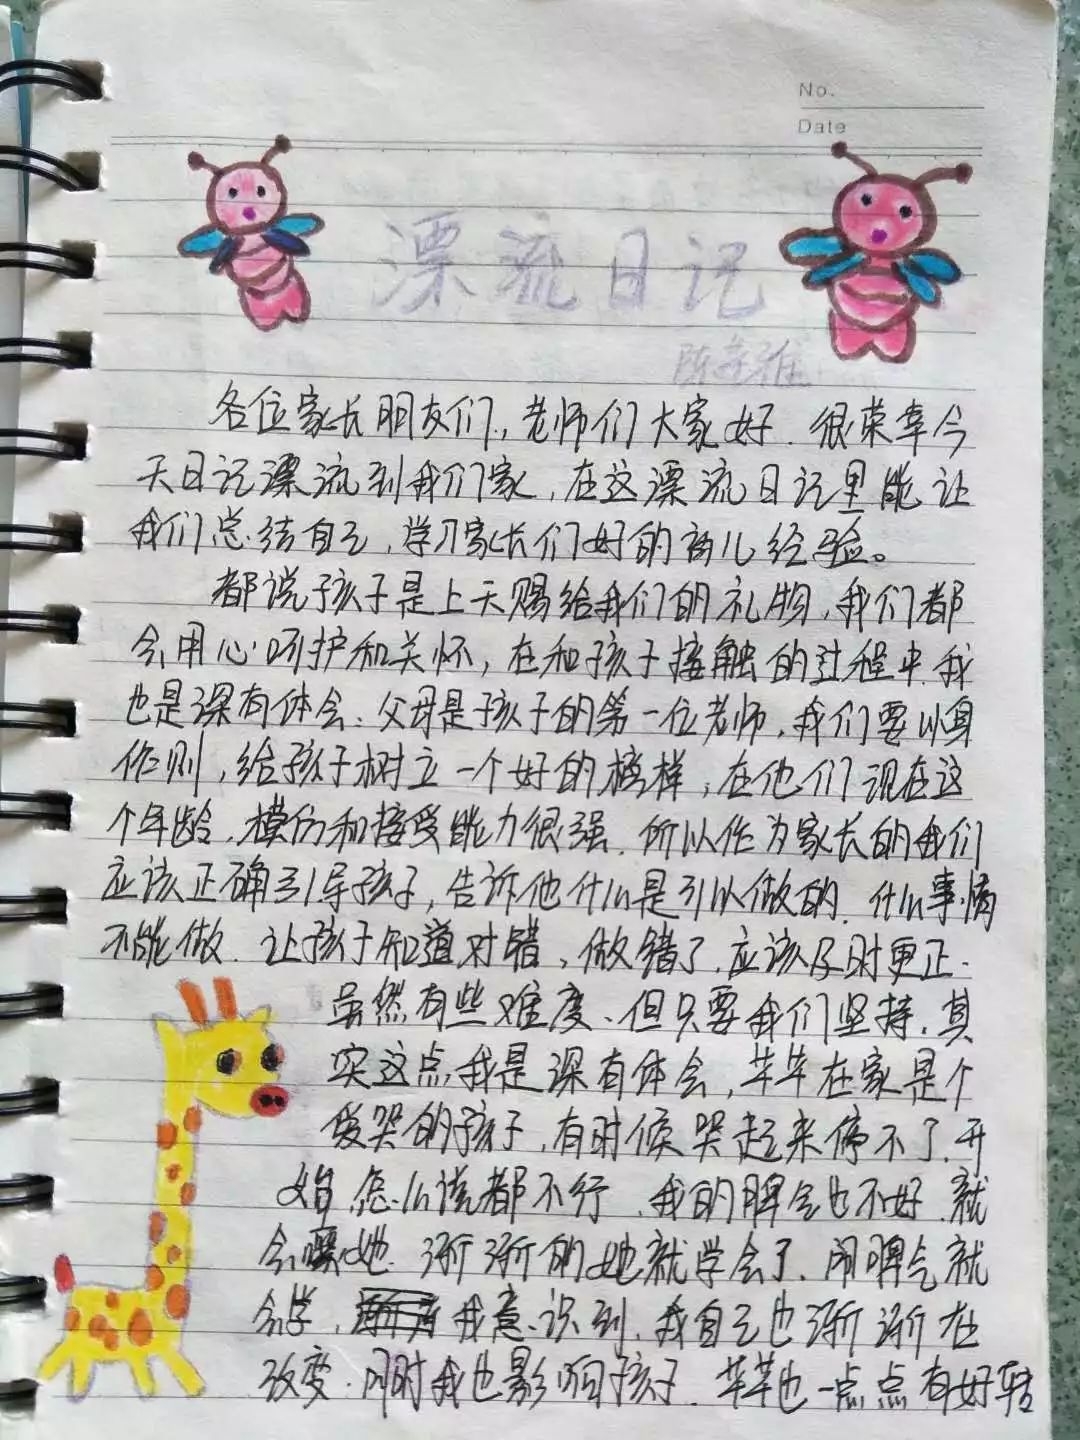 No.
Date
漂流日记
陈雅
各位家长朋友们,老师们大家好.很荣幸今
天日记漂流到我们家,在这漂流日记里能让
我们总结自己,学习家长们好的育儿经验。
都说孩子是上天赐给我们的礼物,我们都
会用心呵护和关怀,在和孩子接触的过程中我
也是深有体会.父母是孩子的第一位老师,我们要以身
作则,给孩子树立一个好的榜样,在他们现在这
个年龄,模仿和接受能力很强.所以作为家长的我们
应该正确引导孩子,告诉他什么是可以做的.什么事情
不能做.让孩子知道对错,做错了.应该及时更正.
虽然有些难度、但只要我们坚持.其
实这点我是深有体会,芊芊在家是个
爱哭的孩子,有时候哭起来停不了.开
始怎么说都不行.我的脾气也不好.就
会嚷她.渐渐的她就学会了.闹脾气就
会学,我意识到.我自己也渐渐在
改变.同时我也影响孩子.芊芊也一点点有好转